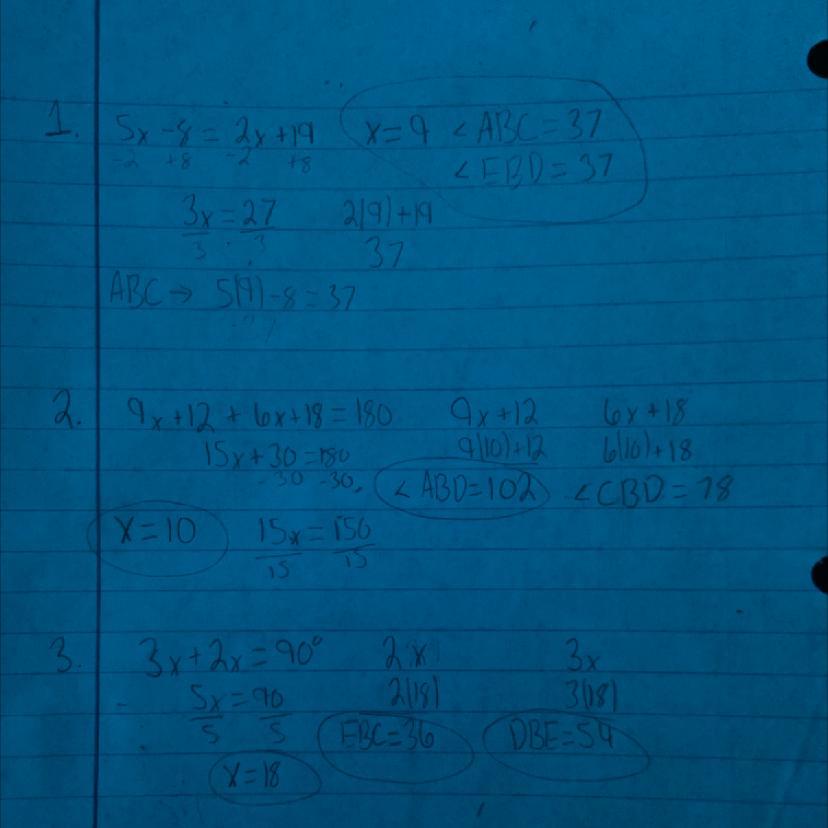 1. 5x -8 = 2x +19 x=9 <ABC = 37
-2 +8 -2 +8 <EBD = 37
3x = 27 2(9)+19
3 3 37
ABC → 5(9)-8 = 37
2. 9x+12 + 6x+18 = 180 9x+12 6x+18
15x+30 =180 9(10)+12 6(10)+18
-30 -30 <ABD=102 <CBD = 78
x=10 15x = 150
15 15
3. 3x+2x = 90° 2x 3x
5x = 90 2(18) 3(18)
5 5 EBC=36 DBE=54
x=18